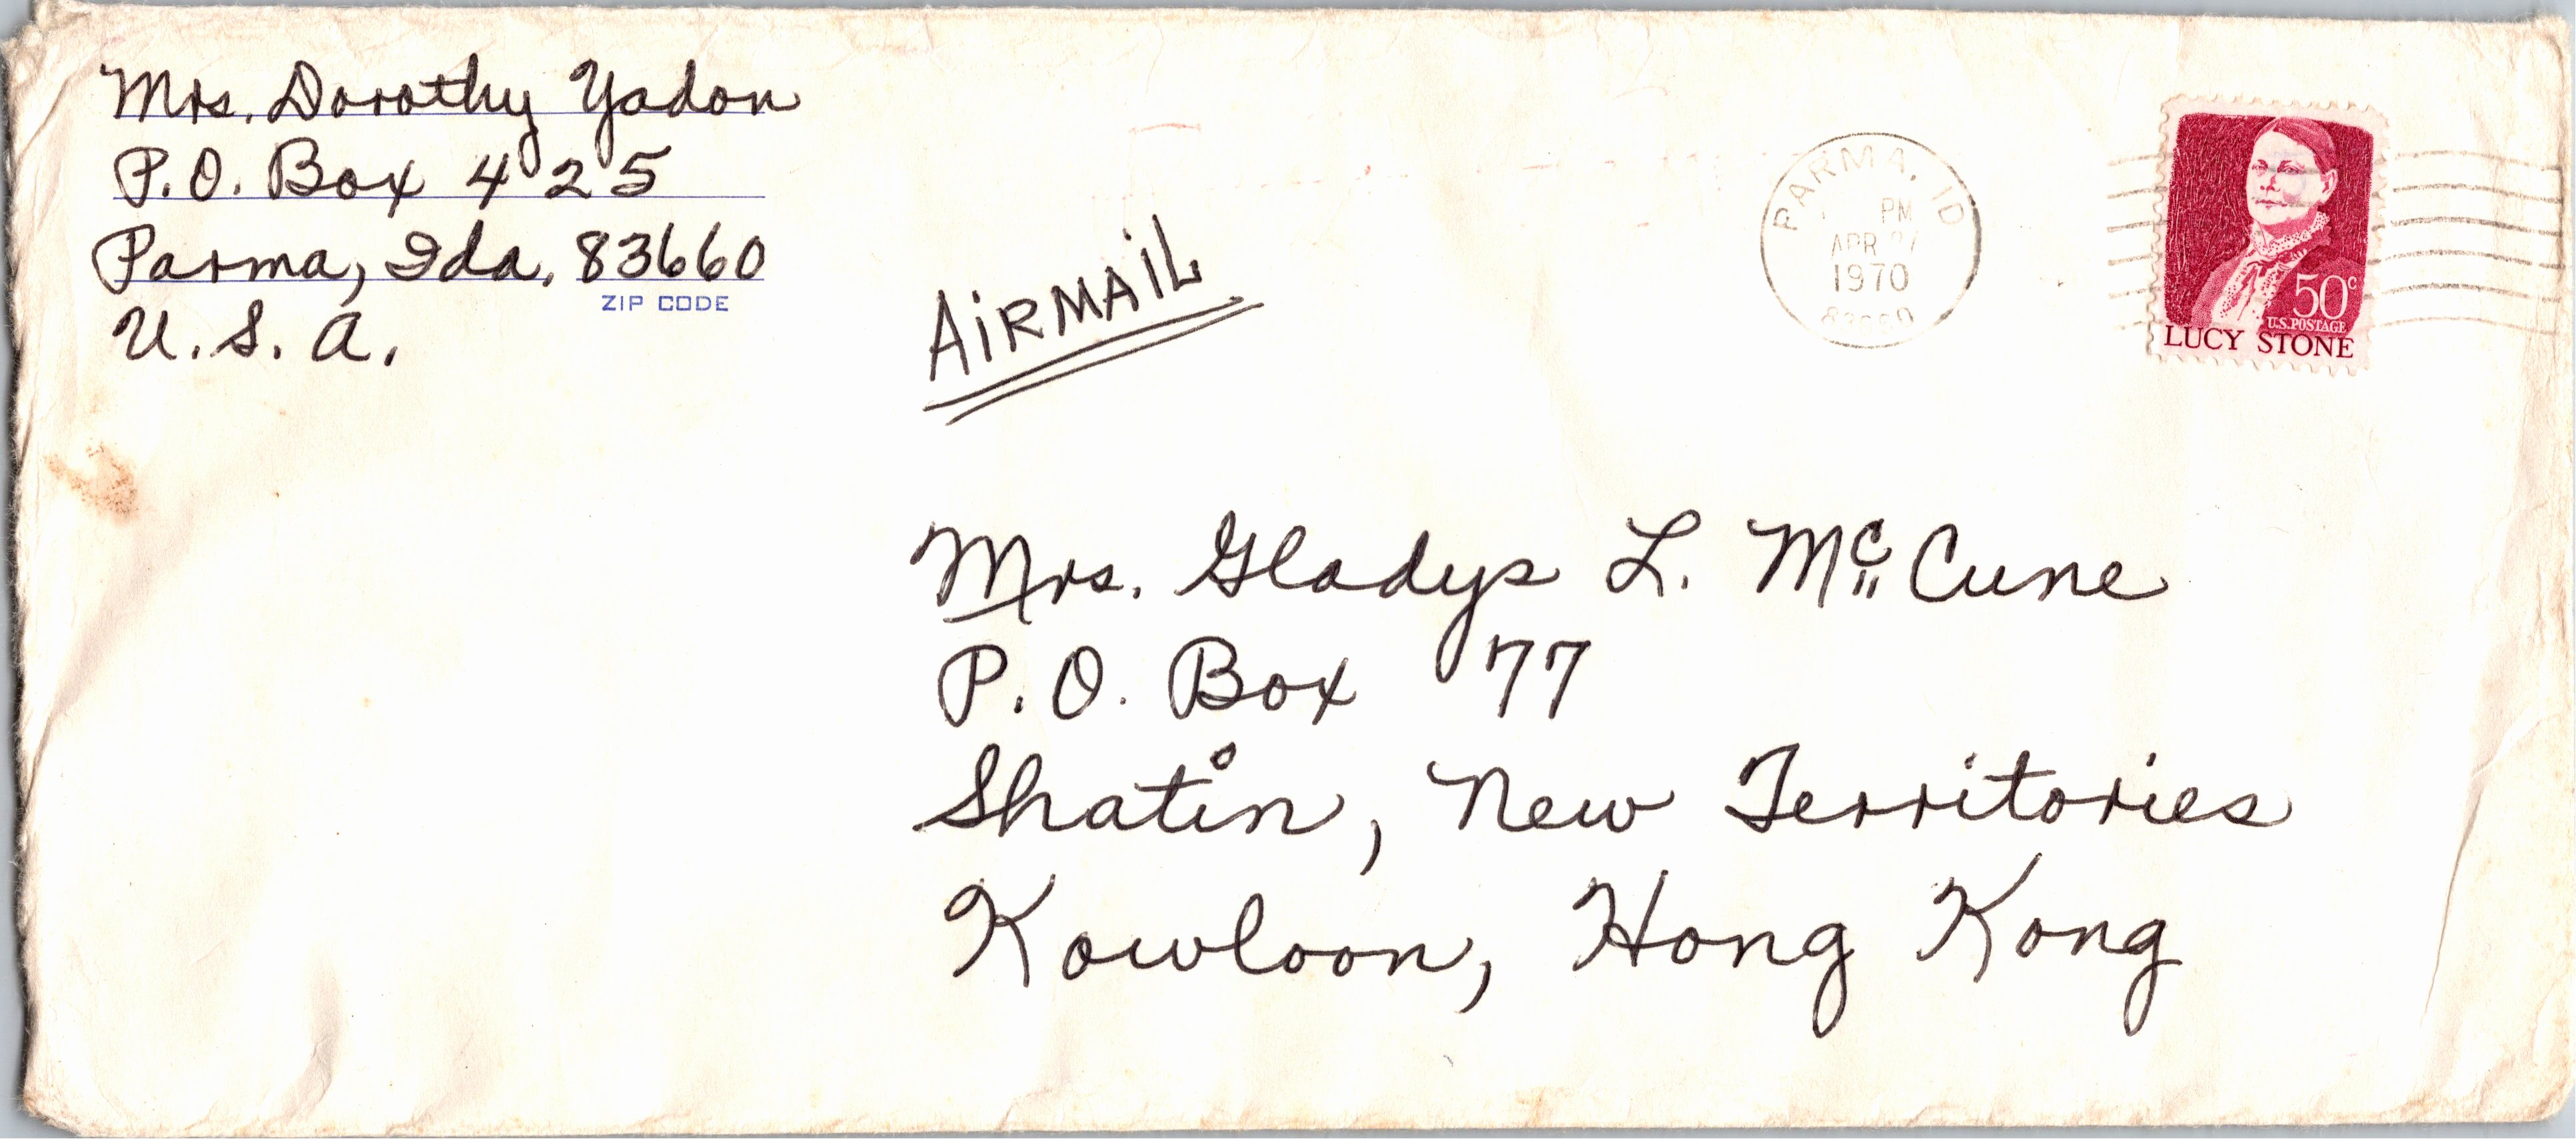 Mrs. Dorothy Yadon
P.O. Box 425
Parma, Ida. 83660
ZIP CODE
U.S.A.
AiRMAiL
PARMA, ID
PM
APR 27
1970
50c
U.S. POSTAGE
LUCY STONE
Mrs. Gladys L. McCune
P.O. Box 77
Shatin, New Territories
Kowloon, Hong Kong